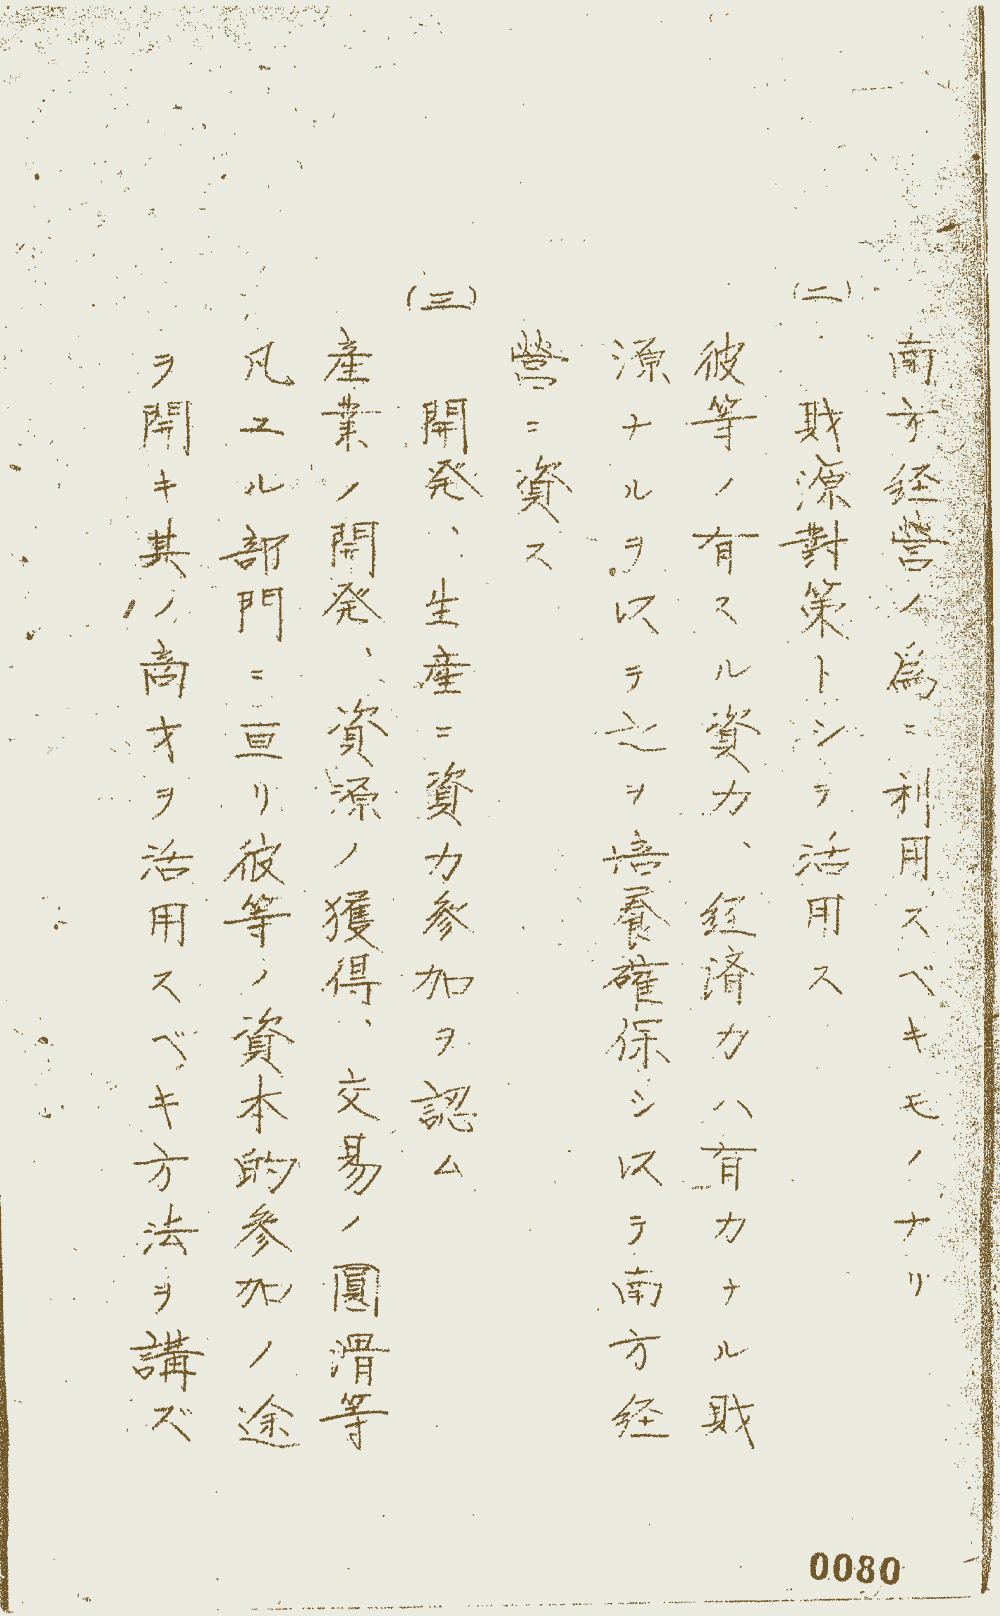 南方経営ノ為ニ利用スベキモノナリ
(二)
財源對策トシテ活用ス
彼等ノ有スル資力、経済力ハ有力ナル財
源ナルヲ以テ之ヲ培養確保シ以テ南方経
営ニ資ス
(三)
開発、生産ニ資力参加ヲ認ム
産業ノ開発、資源ノ獲得、交易ノ圓滑等
凡ユル部門ニ亘リ彼等ノ資本的参加ノ途
ヲ開キ其ノ商才ヲ活用スベキ方法ヲ講ズ
0080